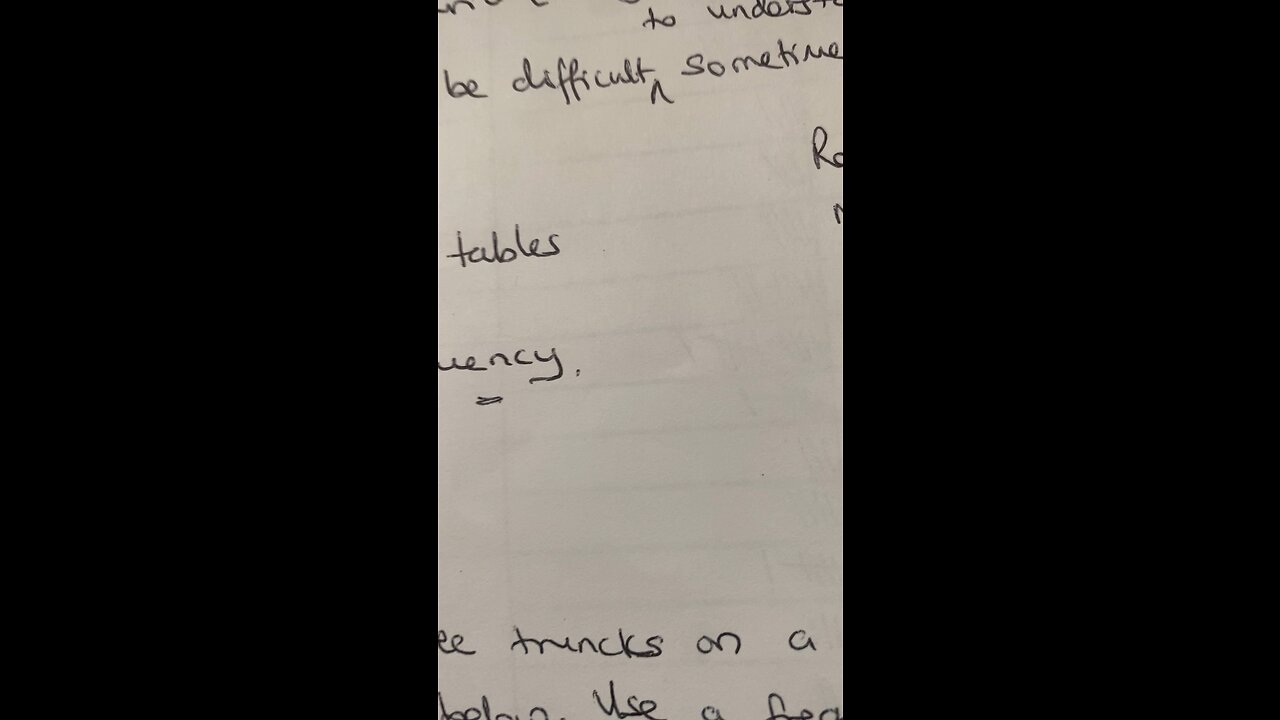 to underst
be difficult ^ sometime
Ro
tables
uency.
ee truncks on a
below. Use a freq